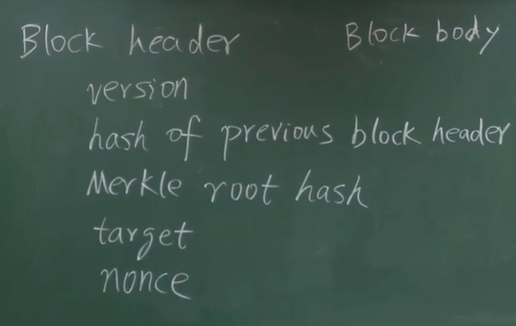 Block header
Block body
version
hash of previous block header
Merkle root hash
target
nonce